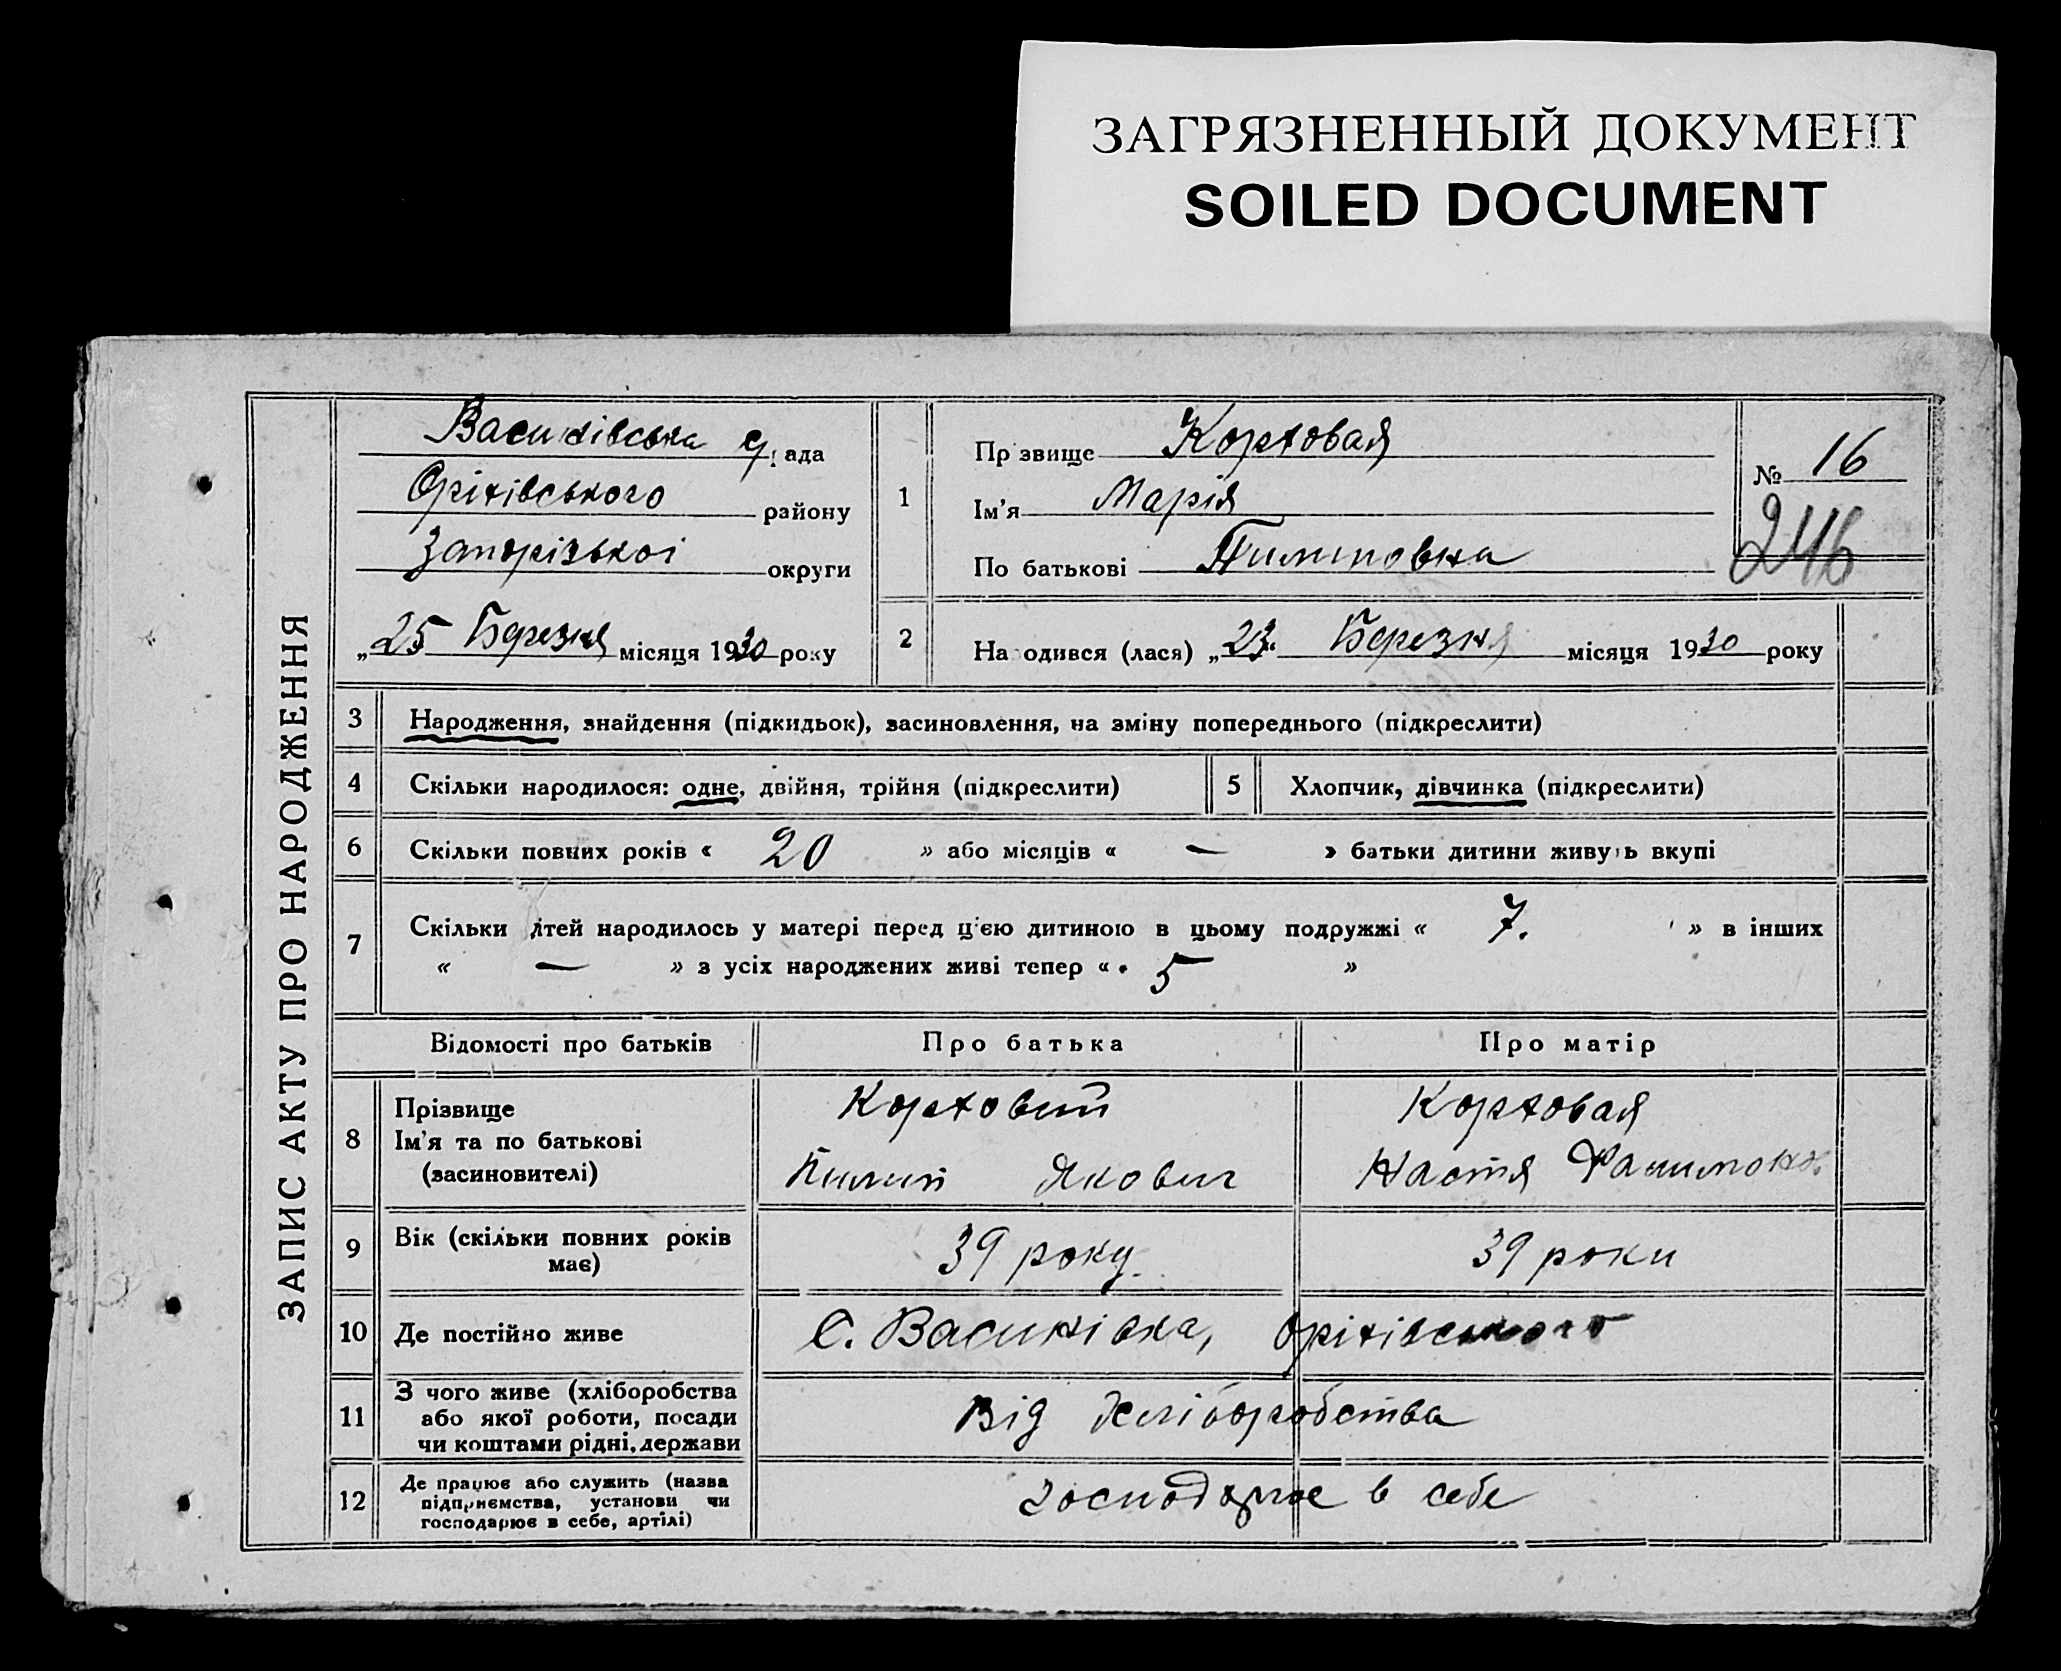 ЗАГРЯЗНЕННЫЙ ДОКУМЕНТ
SOILED DOCUMENT
ЗАПИС АКТУ ПРО НАРОДЖЕННЯ
Васинівська с/рада
Оріхівського району
Запорізькоі округи
„25 Березня місяця 1930 року
1
Прізвище Кортовая
Ім'я Марія
По батькові Пилиповна
№ 16
246
2
Народився (лася) „23“ Березня місяця 1930 року
3 Народження, знайдення (підкидьок), засиновлення, на зміну попереднього (підкреслити)
4 Скільки народилося: одне, двійня, трійня (підкреслити) 5 Хлопчик, дівчинка (підкреслити)
6 Скільки повних років « 20 » або місяців « — » батьки дитини живуть вкупі
7 Скільки дітей народилось у матері перед ц'єю дитиною в цьому подружжі « 7. » в інших
« — » з усіх народжених живі тепер « 5 »
Відомості про батьків Про батька Про матір
8 Прізвище Кортовий Кортовая
Ім'я та по батькові Пилип Якович Настя
(засиновителі)
9 Вік (скільки повних років має) 39 року 39 роки
10 Де постійно живе С. Васинівка, Оріхівського
11 З чого живе (хліборобства
або якої роботи, посади
чи коштами рідні, держави
Від Хліборобства
12 Де працює або служить (назва
підприємства, установи чи
господарює в себе, артілі)
господарює в себе